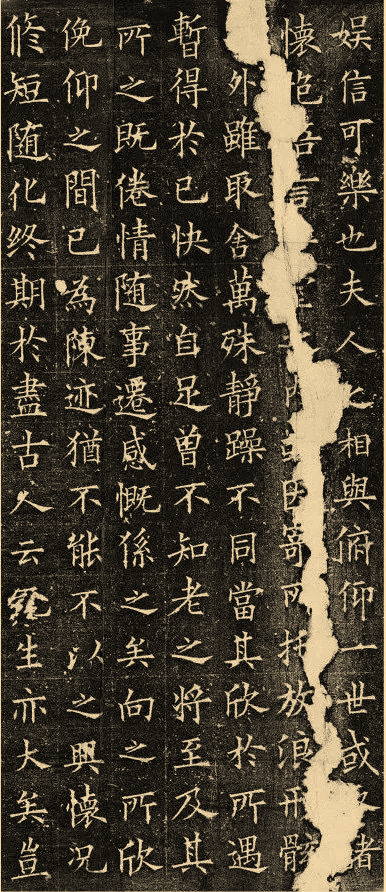 娱信可樂也夫人之相與俯仰一世或諸
懷抱悟言內或因寄所托放浪形骸
外雖取舍萬殊靜躁不同當其欣於所遇
暫得於己快然自足曾不知老之將至及其
所之既倦情随事遷感慨係之矣向之所欣
俛仰之間已為陳迹猶不能不以之興懷況
修短随化终期於盡古人云死生亦大矣豈